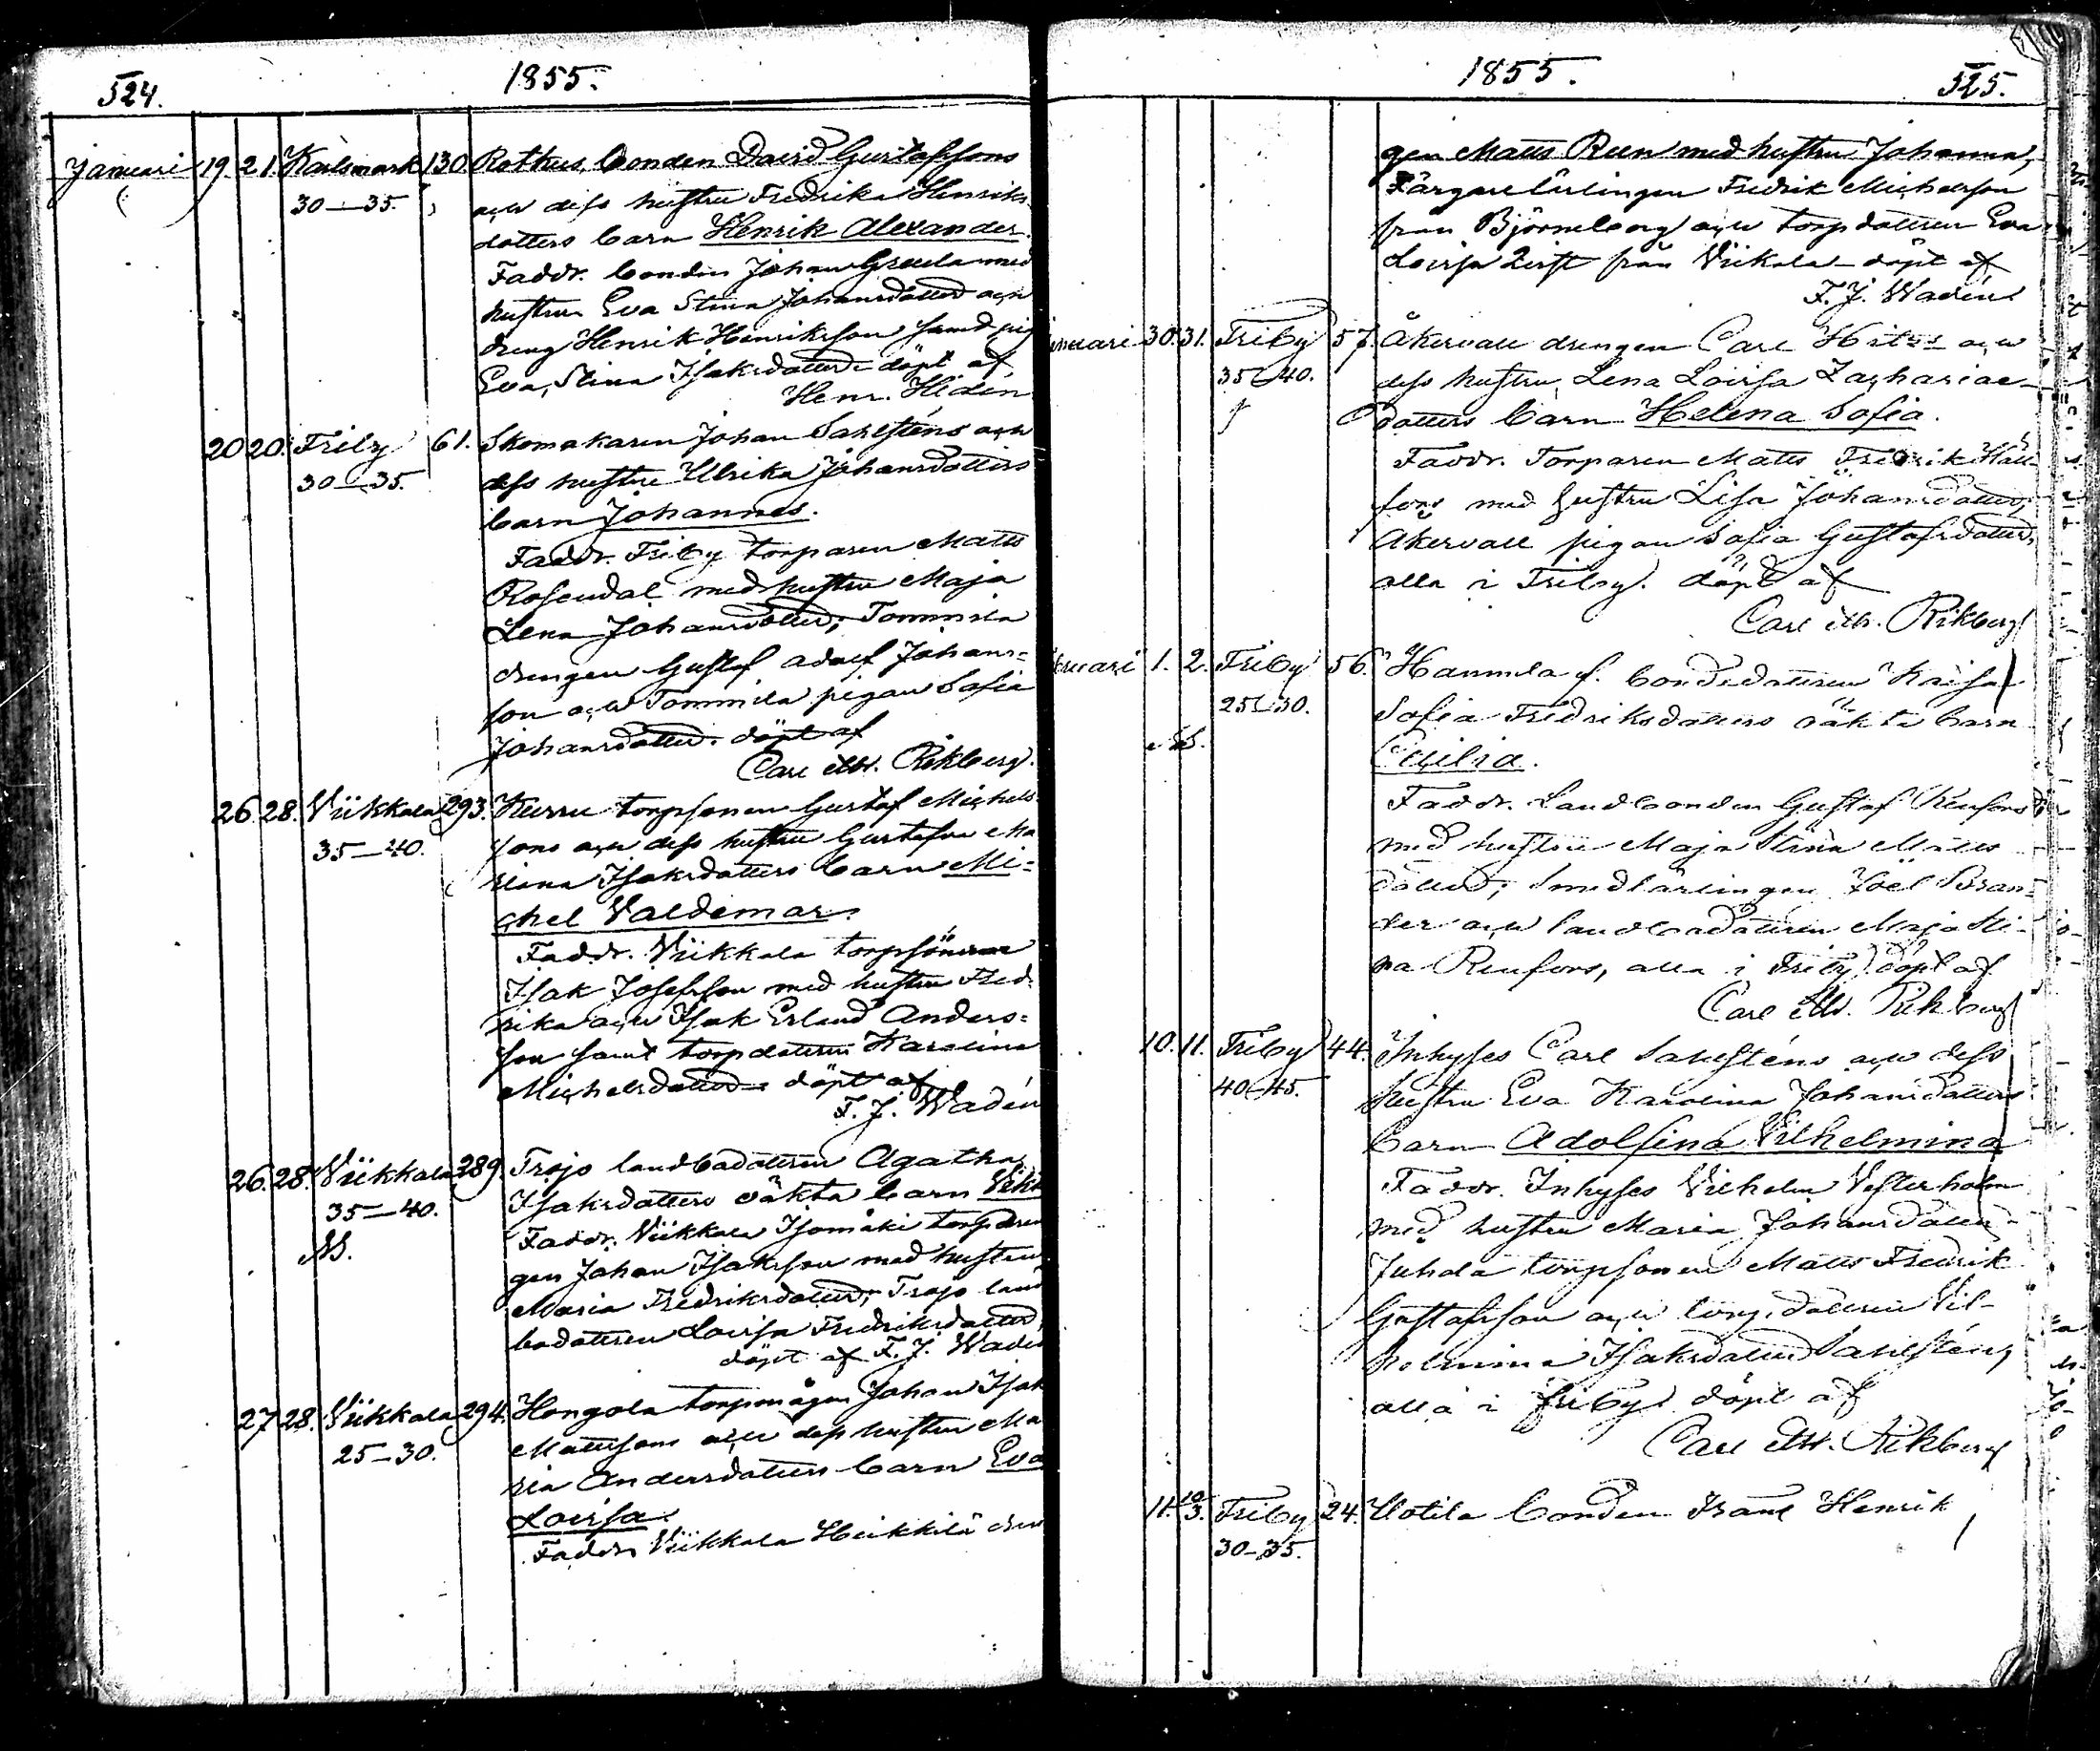 524.
1855.
Januari 19. 21. Karlsmark 130. Rothus bonden David Gustafssons
30—35. och dess hustru Fredrika Henriks-
dotters barn Henrik Alexander.
Faddr. bonden Johan Greula med
hustrun Eva Stina Johansdotter och
dreng Henrik Henriksson samt pig
Eva Stina Isaksdotter döpt af
Henr. Hidén
20 20. Friby 61. Skomakaren Johan Sahlsténs och
30—35. dess hustru Ulrika Johansdotters
barn Johannes.
Faddr. Friby torparen Matts
Rosendal med hustru Maja
Lena Johansdotter, Tommila
drengen Gustaf Adolf Johans=
son och Tommila pigan Sofia
Johansdotter. döpt af
Carl M. Rikberg.
26. 28. Viikkala 293. Kurru torpsonen Gustaf Michels-
35—40. sons och dess hustru Gustafva Ma
riana Isaksdotters barn Mi=
chel Valdemar.
Faddr. Viikkala torpsönerne
Isak Josefsson med hustru Fred-
rika och Isak Erland Anders=
son samt torpdottren Karolina
Michelsdotter döpt af
F. J. Wadén
26. 28. Viikkala 289. Trojo landbodottren Agatha
35—40. Isaksdotters oäkta barn
NB. Faddr. Viikkala Isomäki torpdren
gen Johan Isaksson med hustru
Maria Fredriksdotter, Trojo land
bodottren Lovisa Fredriksdotter,
döpt af F. J. Waden
27 28. Viikkala 294. Hongola torpmågen Johan Isak
25—30. Mattssons och dess hustru Ma
ria Andersdotters barn Eva
Lovisa.
Faddr. Viikkala Heikkilä dren
1855.
525.
gen Matts Reen med hustru Johanna,
Färgare lärlingen Fredrik Michelsson
från Björneborg och torpdottren Eva
Lovisa från Viikala döpt af
F. J. Wadén
Januari 30. 31. Friby 57. Åkervall drengen Carl och
35—40. dess hustru Lena Lovisa Zacharias-
dotters barn Helena Sofia.
Faddr. Torparen Matts Fredrik Häll-
fors med hustru Lisa Johansdotter,
Åkervall pigan Sofia Gustafsdotter,
alla i Friby. döpt af
Carl M. Rikberg
Februari 1. 2. Friby 56. Hannula f. bondedottren Kaisa
25—30. Sofia Fredriksdotters oäkta barn
NB. Cecilia.
Faddr. Landbonden Gustaf Renfors
med hustru Maja Stina Matts
dotter, Smedlärlingen Joel Bran-
der och landbodottren Maja Sti-
na Renfors, alla i Friby. döpt af
Carl M. Rikberg
10. 11. Friby 44. Inhyses Carl Sahlsténs och dess
40—45. hustru Eva Karolina Johansdotters
barn Adolfina Vilhelmina
Faddr. Inhyses Vilhelm Vesterholm
med hustru Maria Johansdotter
Juhola torpsonen Matts Fredrik
Gustafsson och torp. dottren Vil-
helmina Isaksdotter Sahlstén,
alla i Friby döpt af
Carl M. Rikberg
11. 10/3. Friby 24. Uotila bonden Frans Henrik
30—35.